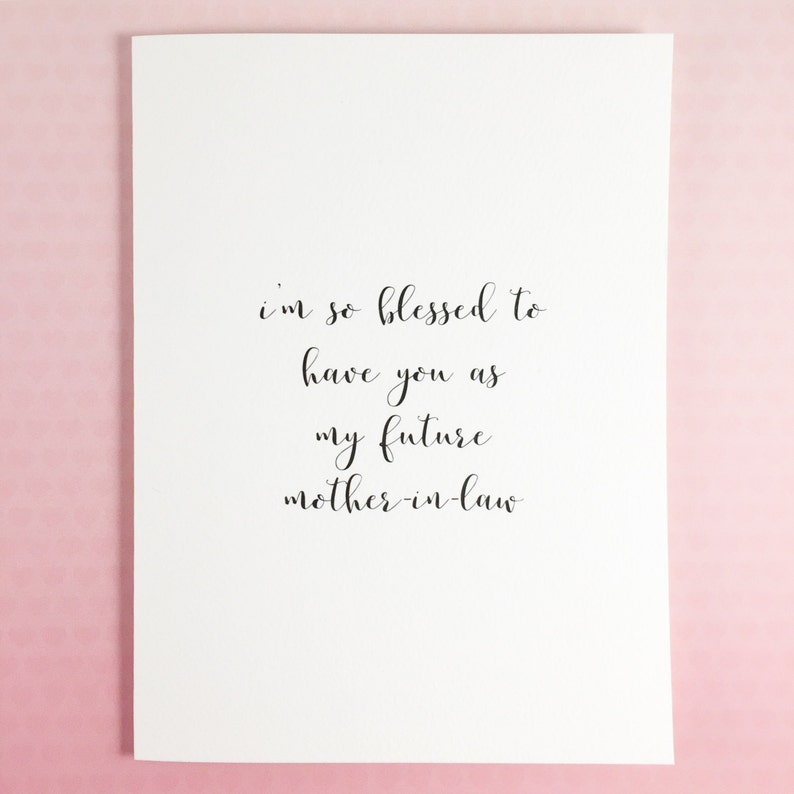 i'm so blessed to
have you as
my future
mother-in-law